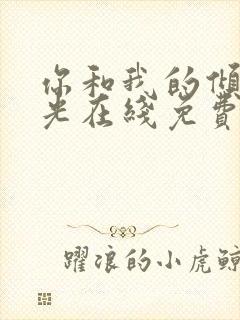 你和我的傾
光在綫免費
躍浪的小虎鯨